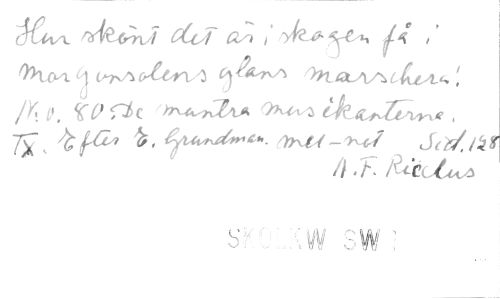 Hur skönt det är i skogen få i
morgonsolens glans marschera!
N:o. 80. De muntra musikanterna.
Tx. Efter E. Grundman. mel-not Sid. 128
A. F. Riccius
SKOLKW SW